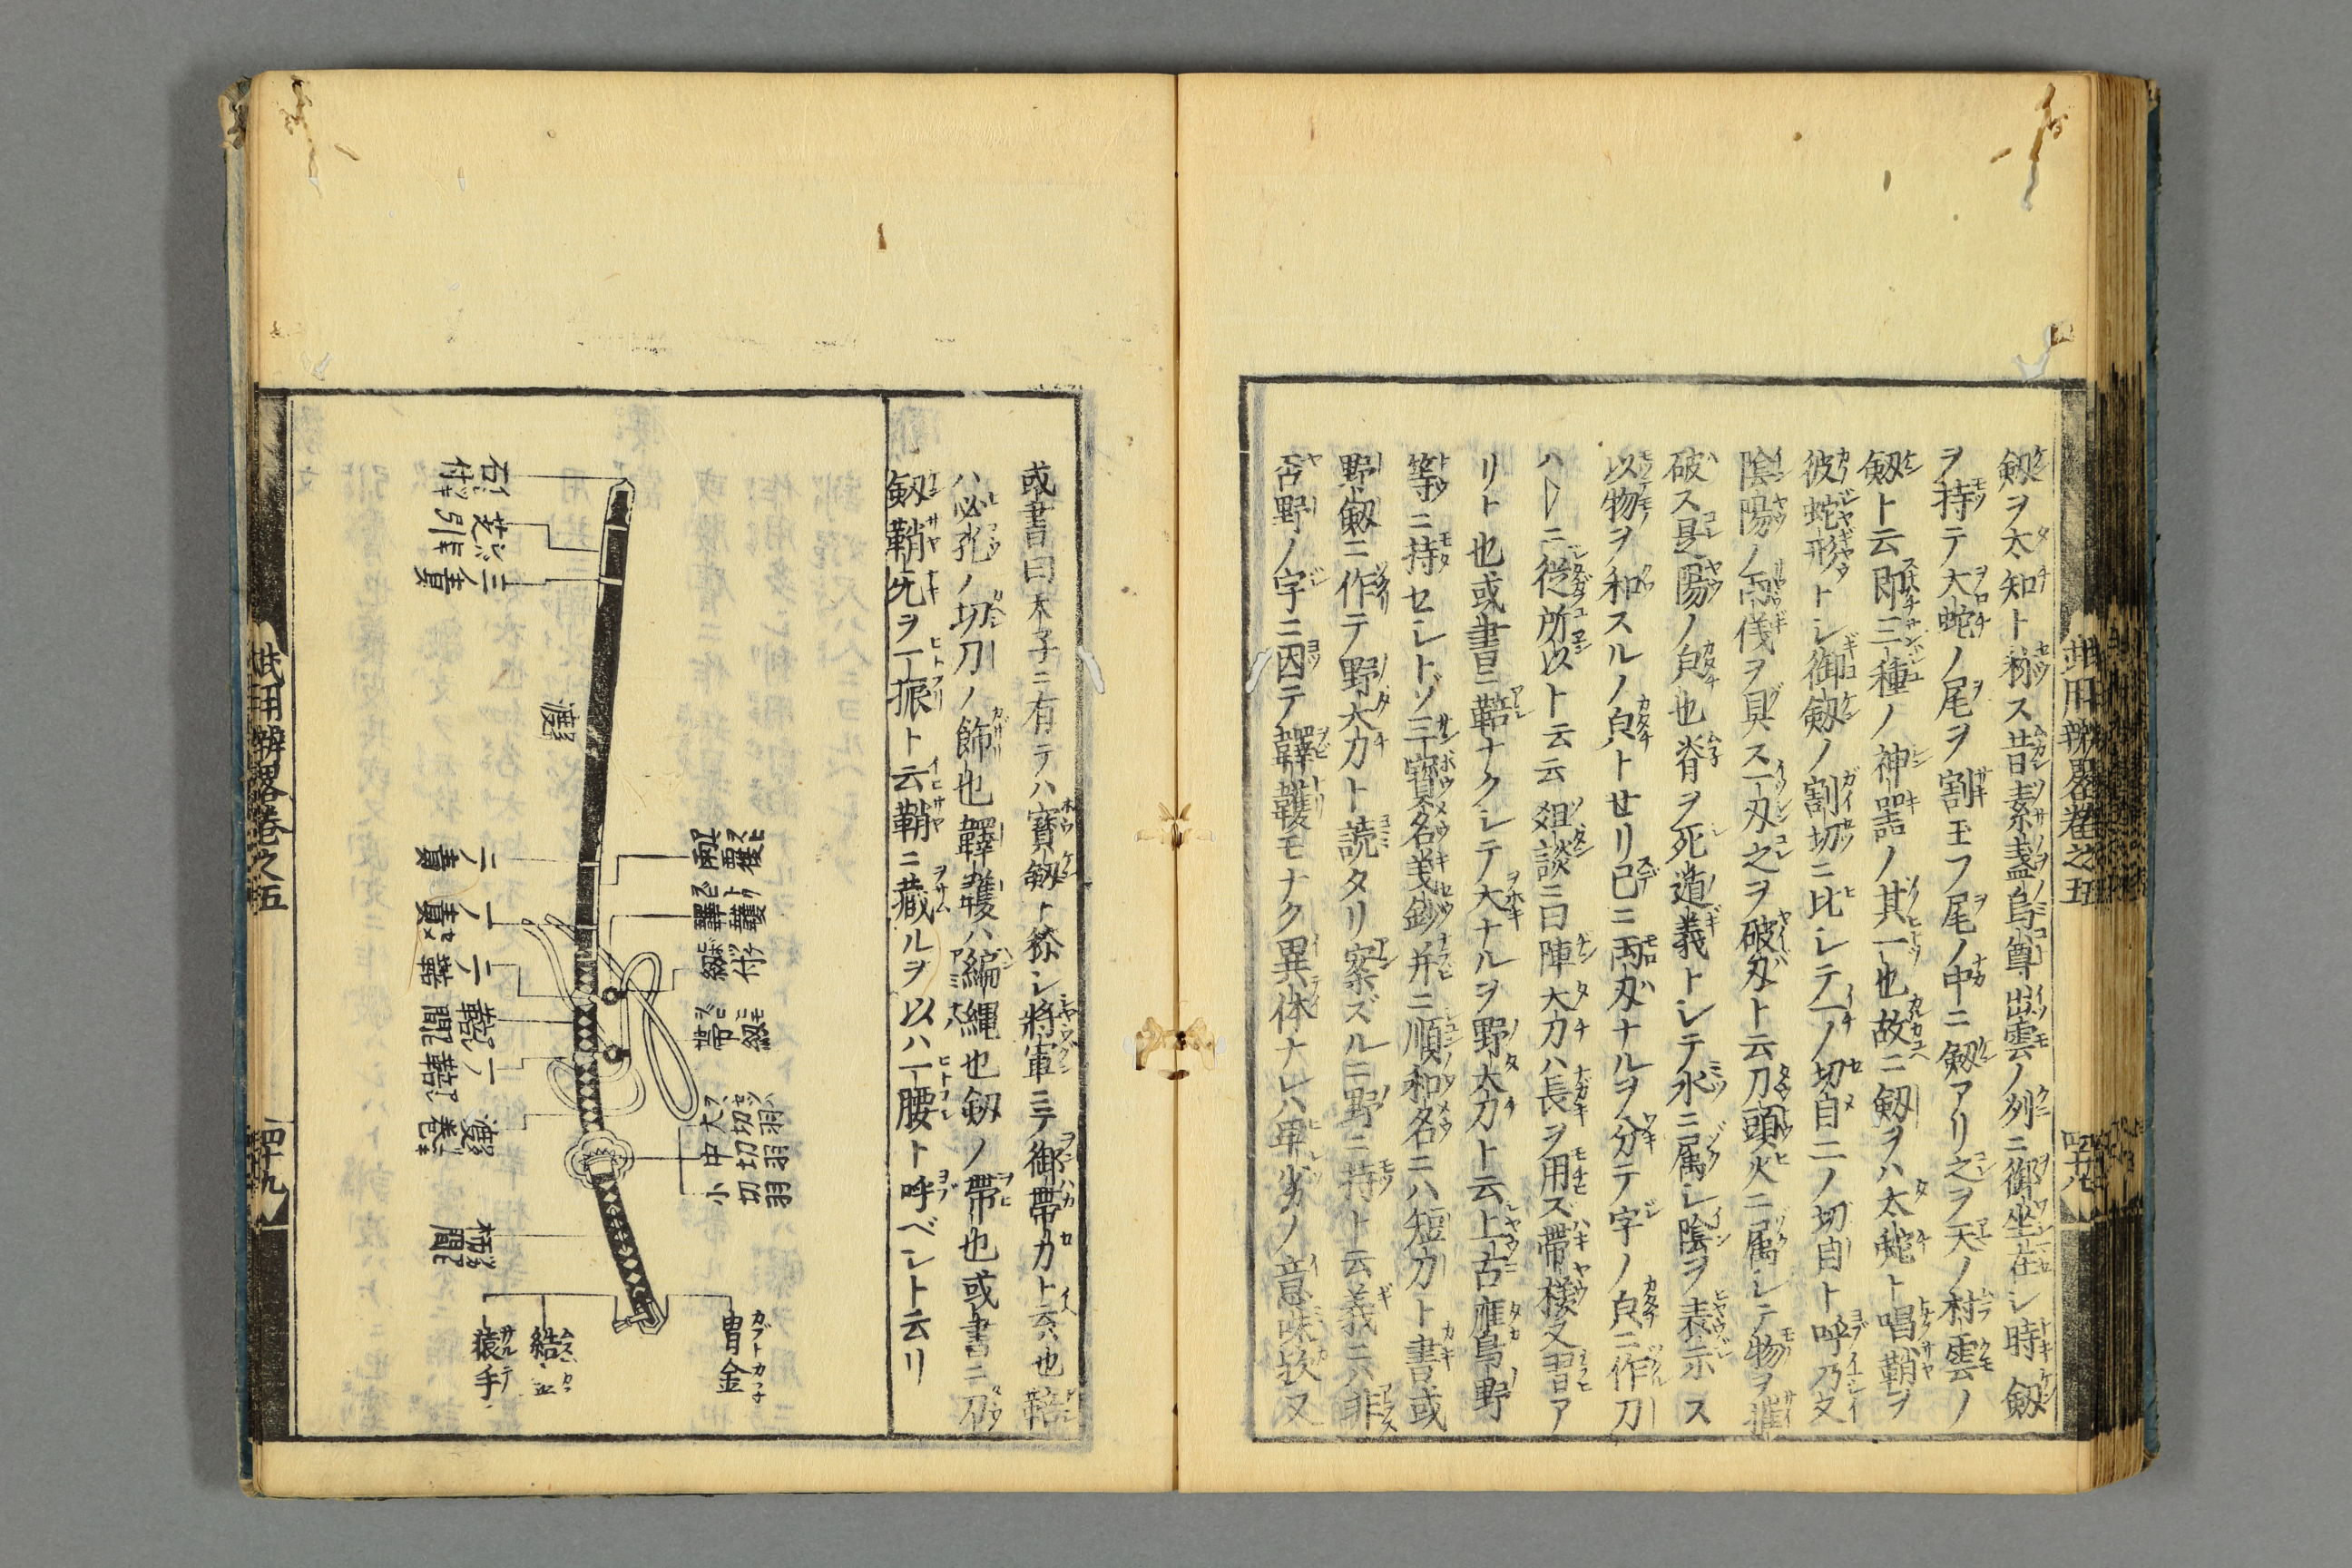 武用辨畧卷之五
劔ヲ太知ト称ス昔素盞烏尊出雲ノ列ニ御坐在シ時劔
ヲ持テ大蛇ノ尾ヲ割玉フ尾ノ中ニ劔アリ之ヲ天ノ村雲ノ
劔ト云即三種ノ神器ノ其一也故ニ劔ヲハ太蛇ト唱鞘ヲ
彼蛇形トシ御劔ノ割切ニ比シテ一ノ切自二ノ切自ト呼乃文
陰陽ノ両儀ヲ具ス一刃之ヲ破刄ト云刀頭火ニ属シテ物ヲ摧
破ス是陽ノ皃也脊ヲ死道義トシテ水ニ属シ陰ヲ表示ス
以物ヲ和スルノ皃トせリ已ニ両刄ナルヲ分テ字ノ皃ニ作刀
ハ卩ニ従所以ト云云俎談ニ曰陣大刀ハ長ヲ用ズ帶様又習ア
リト也或書ニ鞛ナクシテ大ナルヲ野太刀ト云上古鷹鳥野
等ニ持セシトゾ三寳名義鈔并ニ順和名ニハ短刀ト書或
野劔ニ作テ野大刀ト読タリ案ズルニ野ニ持ト云義ニハ非
吝野ノ字ニ因テ韗韄モナク異体ナレハ卑劣ノ意味欤又
或書曰木子ニ有テハ寳劔ト称シ將軍ニテ御帶刀ト云也鞛
ハ必孔ノ切刀ノ飾也韗韄ハ編縄也劔ノ帶也或書ニ刀
劔鞘先ヲ一振ト云鞘ニ蔵ルヲ以ハ一腰ト呼ベシト云リ
石付
芝引
三ノ責
渡
二ノ責
一ノ責
雨覆
帶
一ノ
渡巻
大切羽
中切羽
小切羽
柄間
冑金
猿手
武用辨畧卷之五
四十九